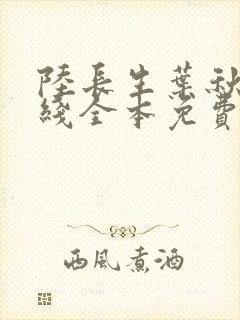 陸長生葉秋
綫全本免費
西風煮酒